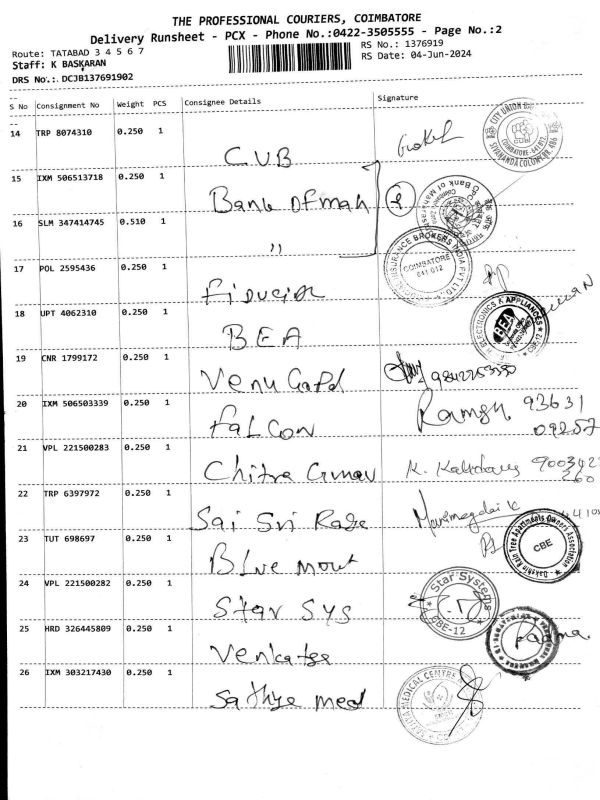 THE PROFESSIONAL COURIERS, COIMBATORE
Delivery Runsheet - PCX - Phone No.:0422-3505555 - Page No.:2
Route: TATABAD 3 4 5 6 7
RS No.: 1376919
Staff: K BASKARAN
RS Date: 04-Jun-2024
DRS No.: DCJB137691902
S No Consignment No Weight PCS Consignee Details Signature
14 TRP 8074310 0.250 1
CUB
15 IXM 506513718 0.250 1
Bank of mah
16 SLM 347414745 0.510 1
"
COIMBATORE
641 012
17 POL 2595436 0.250 1
18 UPT 4062310 0.250 1
BEA
BEA
19 CNR 1799172 0.250 1
Venu Gapd
20 IXM 506503339 0.250 1
Falcon
Ramesh 93631
21 VPL 221500283 0.250 1
Chitra
22 TRP 6397972 0.250 1
Sai Sri
23 TUT 698697 0.250 1
Blue mout
CBE
24 VPL 221500282 0.250 1
Star Sys
Star Systems
CBE-12
25 HRD 326445809 0.250 1
Venkatee
Padma
26 IXM 303217430 0.250 1
Sathya med